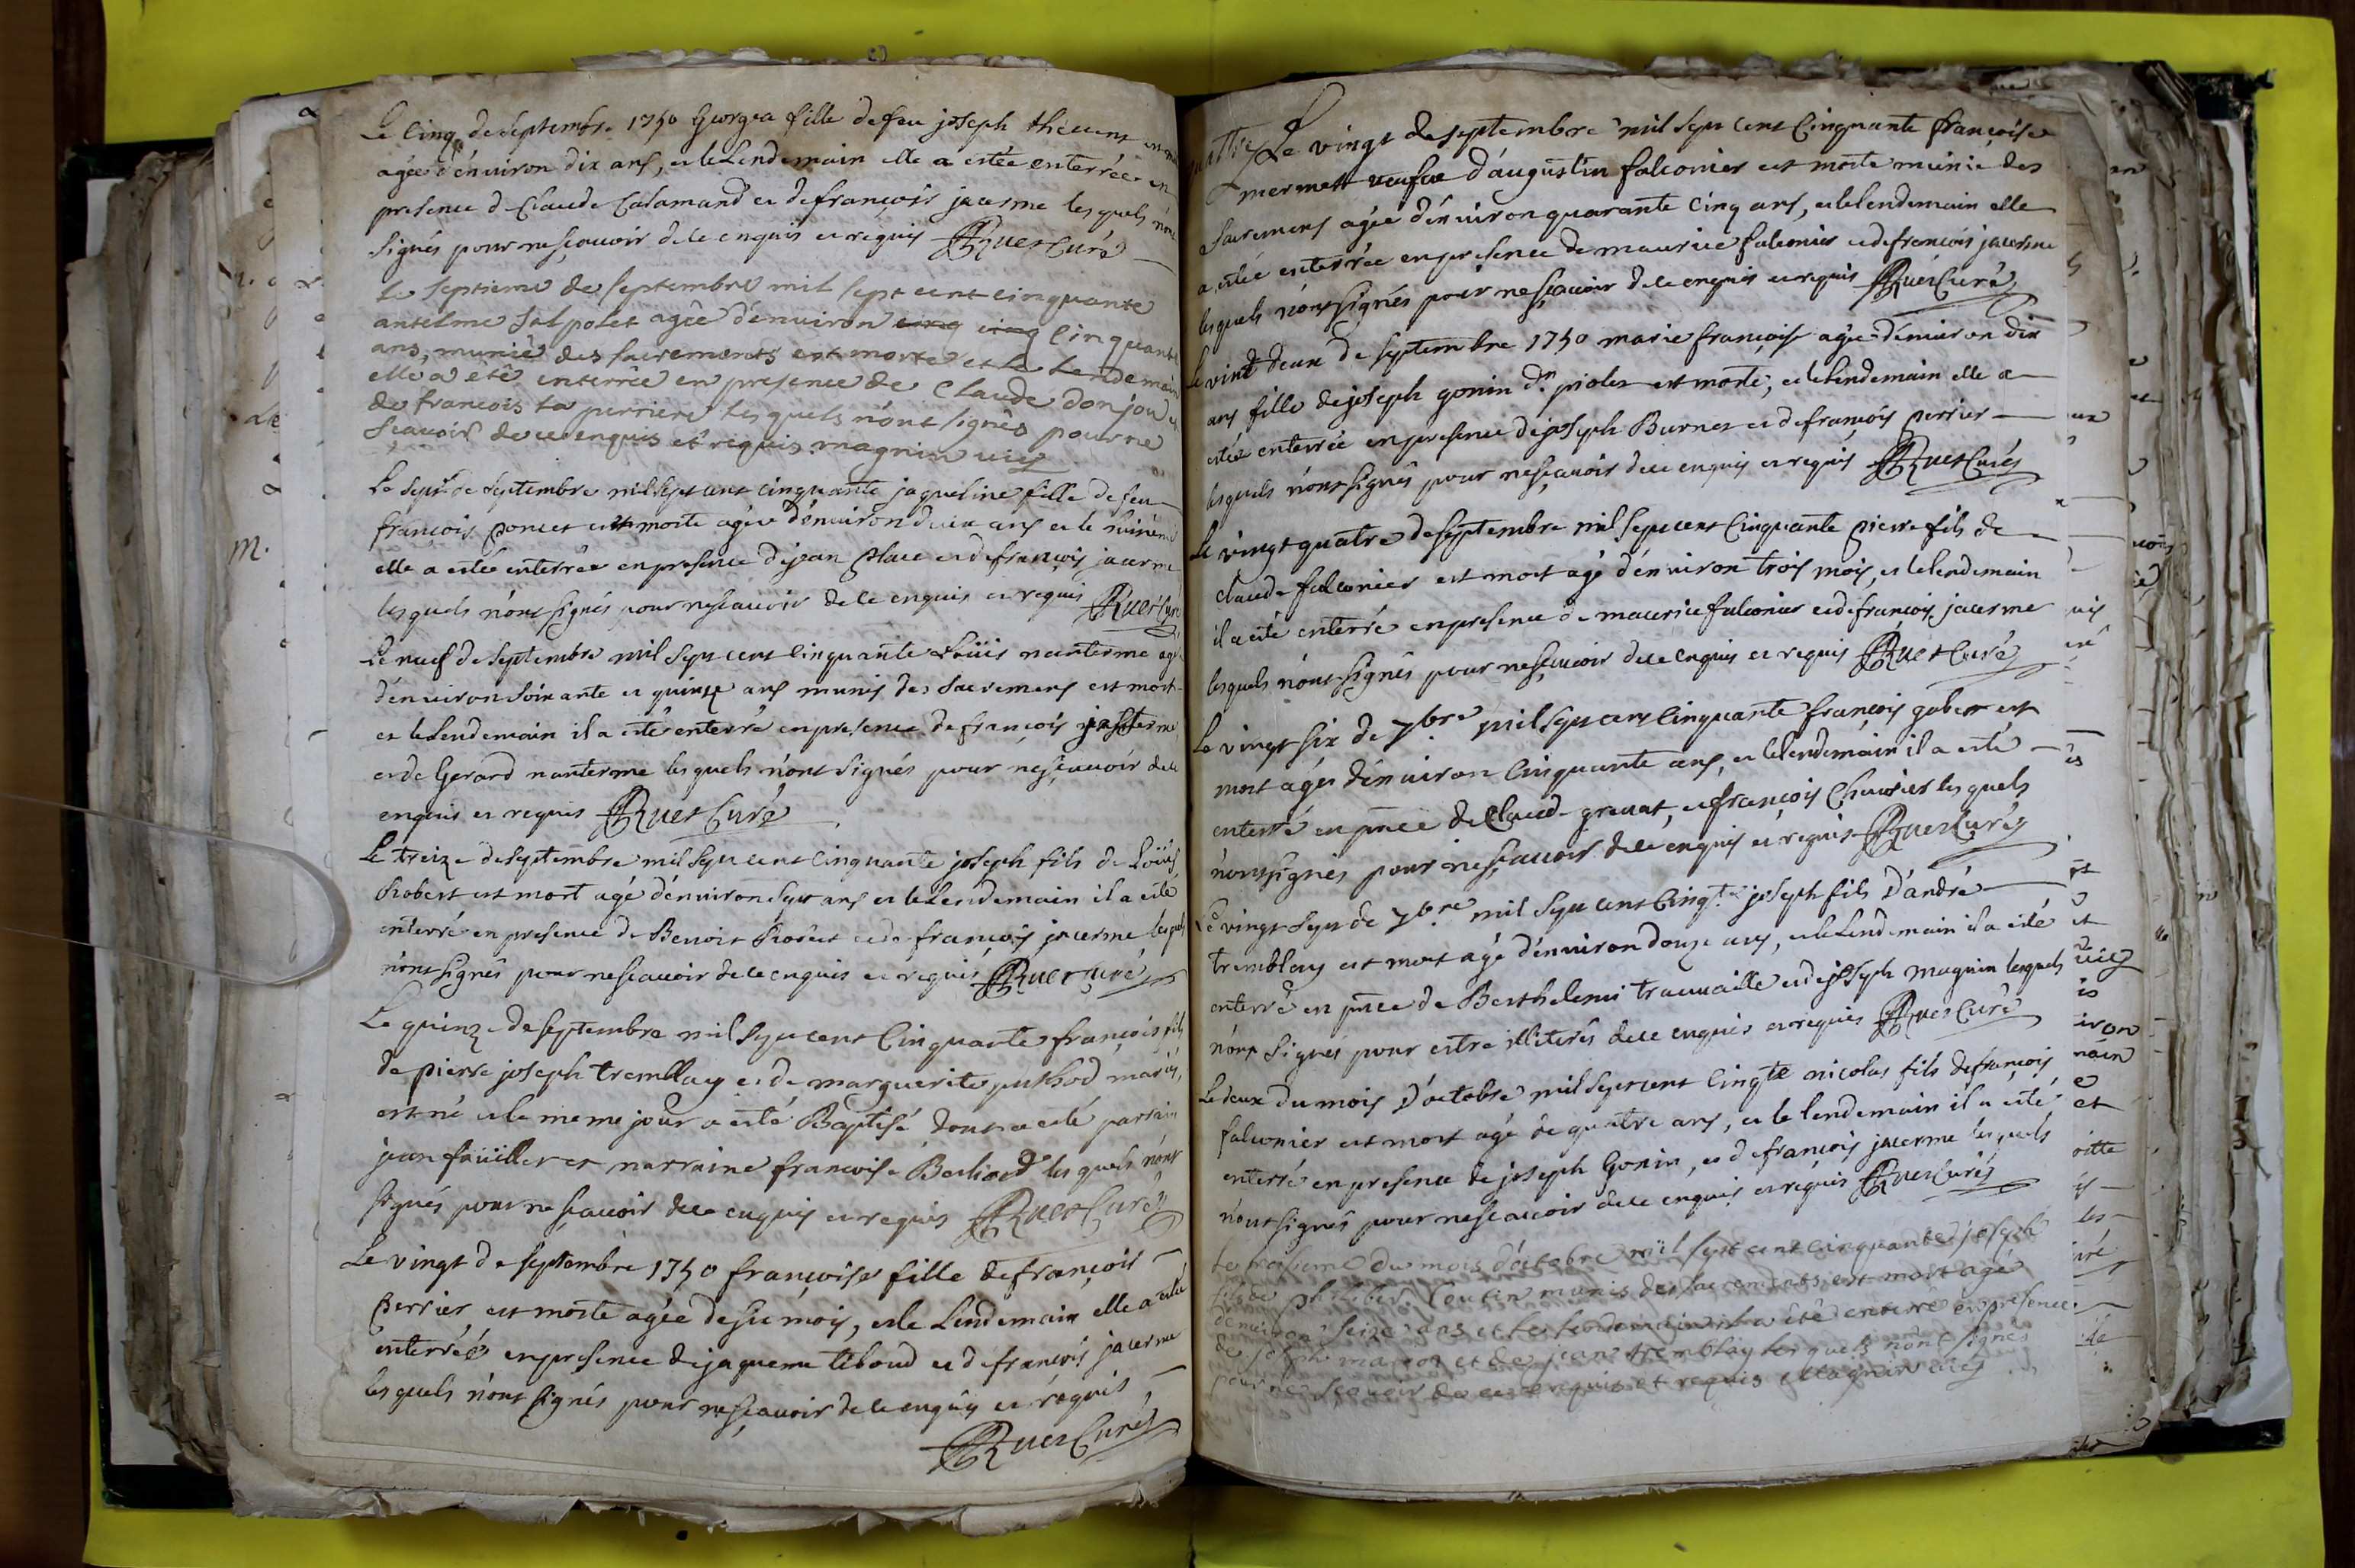 Le Cinq de Septembre 1750 Georgea fille de feu joseph thevent
agée d'énuiron dix ans, et le Lendemain elle a estée enterrée en
presence de Claude Calamand et de françois jacerme les quels n'ont
Signés pour ne sçauoir de ce enquis et requis Ruet Curé
Le septieme de septembre mil sept cent cinquante
antelme Salpolet agée d'énuiron cinq cinq Cinquante
ans, munie des sacrements est morte et le Lendemain
elle a êtê enterrée en presence de Claude donjou et
de francois la perriere les quels n'ont signês pour ne
Scauoir de ce enquis et requis. magnin vic
Le sept de Septembre mil sept cent cinquante jaqueline fille de feu
françois poncet est morte agée d'énuiron deux ans et le
elle a estée enterrée en presence de jean place et de françois jacerme
les quels n'ont signés pour ne scauoir de ce enquis et requis Ruet Curé
Le neuf de Septembre mil sept cent cinquante Loüis nanterme agé
d'énuiron soixante et quinze ans munis des Sacremens est mort
et le Lendemain il a esté enterré en presence de françois jacerme
et de Gerard nanterme les quels n'ont Signés pour ne sçauoir de ce
enquis et requis Ruet Curé
Le treize de septembre mil sept cent cinquante joseph fils de Loüis
Robert est mort agé d'énuiron sept ans et le Lendemain il a esté
enterré en presence de Benoit Robert et de françois jacerme les quels
n'ont signés pour ne scauoir de ce enquis et requis Ruet Curé
Le quinze de septembre mil sept cent Cinquante françois fils
de pierre joseph tremblay et de marguerite puthod mariés,
est né et le meme jour a esté Baptisé dont a esté parrain
jean faüiller et marraine francoise Berliord les quels n'ont
signés pour ne sçauoir de ce enquis et requis Ruet Curé
Le vingt de septembre 1750 françoise fille de françois
perrier, est morte agée de six mois, et le Lendemain elle a esté
enterrée en presence de jaqueme tiboud et de françois jacerme
les quels n'ont signés pour ne sçauoir de ce enquis et requis
Ruet Curé
Le vingt de septembre mil sept cent Cinquante françoise
mermett veufue d'augustin falconier est morte munie des
Sacremens agée d'énuiron quarante cinq ans, et le lendemain elle
a estée enterrée en presence de maurice falconier et de francois jacerme
les quels n'ont signés pour ne sçauoir de ce enquis et requis Ruet Curé
Le vint deux de septembre 1750 marie françoise agée d'énuiron dix
ans fille de joseph gonin dn piolet est morte, et le Lendemain elle a
estée enterrée en presence de joseph Burnet et de françois perrier
les quels n'ont signés pour ne sçauoir de ce enquis et requis Ruet Curé
Le vingt quatre de septembre mil sept cent Cinquante pierre fils de
claude falconier est mort agé d'énuiron trois mois, et le lendemain
il a esté enterré en presence de maurice falconier et de françois jacerme
les quels n'ont signés pour ne sçauoir de ce enquis et requis Ruet Curé
Le vingt six de 7bre mil sept cent Cinquante françois gobett est
mort agé d'énuiron Cinquante ans, et le lendemain il a esté
enterré en pnce de Claude greuat, et françois Cheurier les quels
n'ont signés pour ne sçauoir de ce enquis et requis Ruet Curé
Le vingt sept de 7bre mil sept cent Cinqte joseph fils d'andré
tremblay est mort agé d'énuiron douze ans, et le Lendemain il a esté
enterré en pnce de Berthelemi trauaille et de joseph magnin lesquels
n'ont Signés pour estre illiterés de ce enquis et requis Ruet Curé
Le deux du mois d'octobre mil sept cent Cinqte nicolas fils de françois
falconier est mort agé de quatre ans, et le lendemain il a esté
enterré en presence de joseph Gonin, et de françois jacerme les quels
n'ont signés pour ne scauoir de ce enquis et requis Ruet Curé
du mois d'octobre mil sept cent cinquante joseph
fils de philibert munis des sacrements est mort agé
d'enuiron seize ans et le Lendemain il a été enterré en presence
de joseph et de jean tremblay les quels n'ont signés
pour ne scauoir de ce enquis et requis Magnin vic